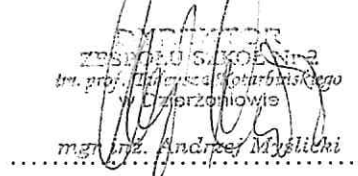 DYREKTOR
ZESPOŁU SZKÓŁ Nr 2
im. prof. Tadeusza Kotarbińskiego
w Dzierżoniowie
mgr inż. Andrzej Myślicki